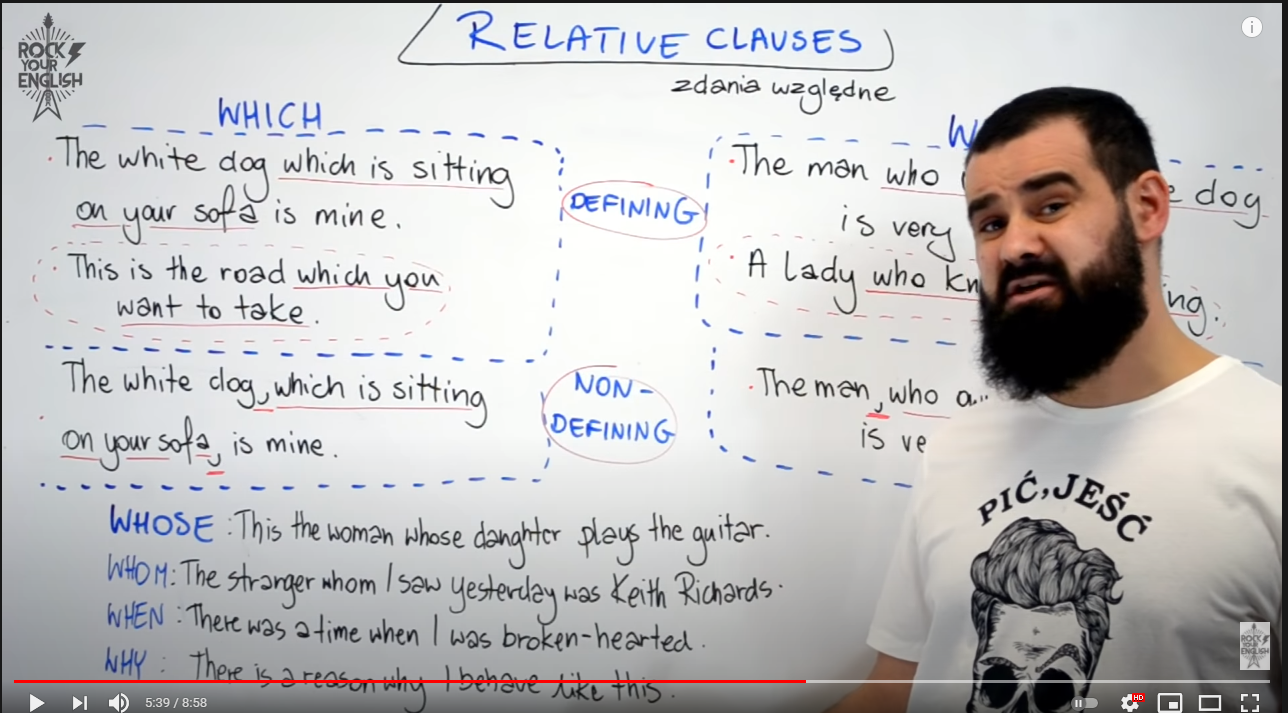 RELATIVE CLAUSES
zdania względne
ROCK
YOUR
ENGLISH
WHICH
The white dog which is sitting
on your sofa is mine.
This is the road which you
want to take.
DEFINING
The man who
dog
is very
A lady who
The white dog, which is sitting
on your sofa, is mine.
NON-
DEFINING
The man, who
is
WHOSE: This the woman whose daughter plays the guitar.
WHOM: The stranger whom I saw yesterday was Keith Richards.
WHEN: There was a time when I was broken-hearted.
WHY: There is a reason why I behave like this.
PIĆ, JEŚĆ
ROCK
YOUR
ENGLISH
5:39 / 8:58
HD